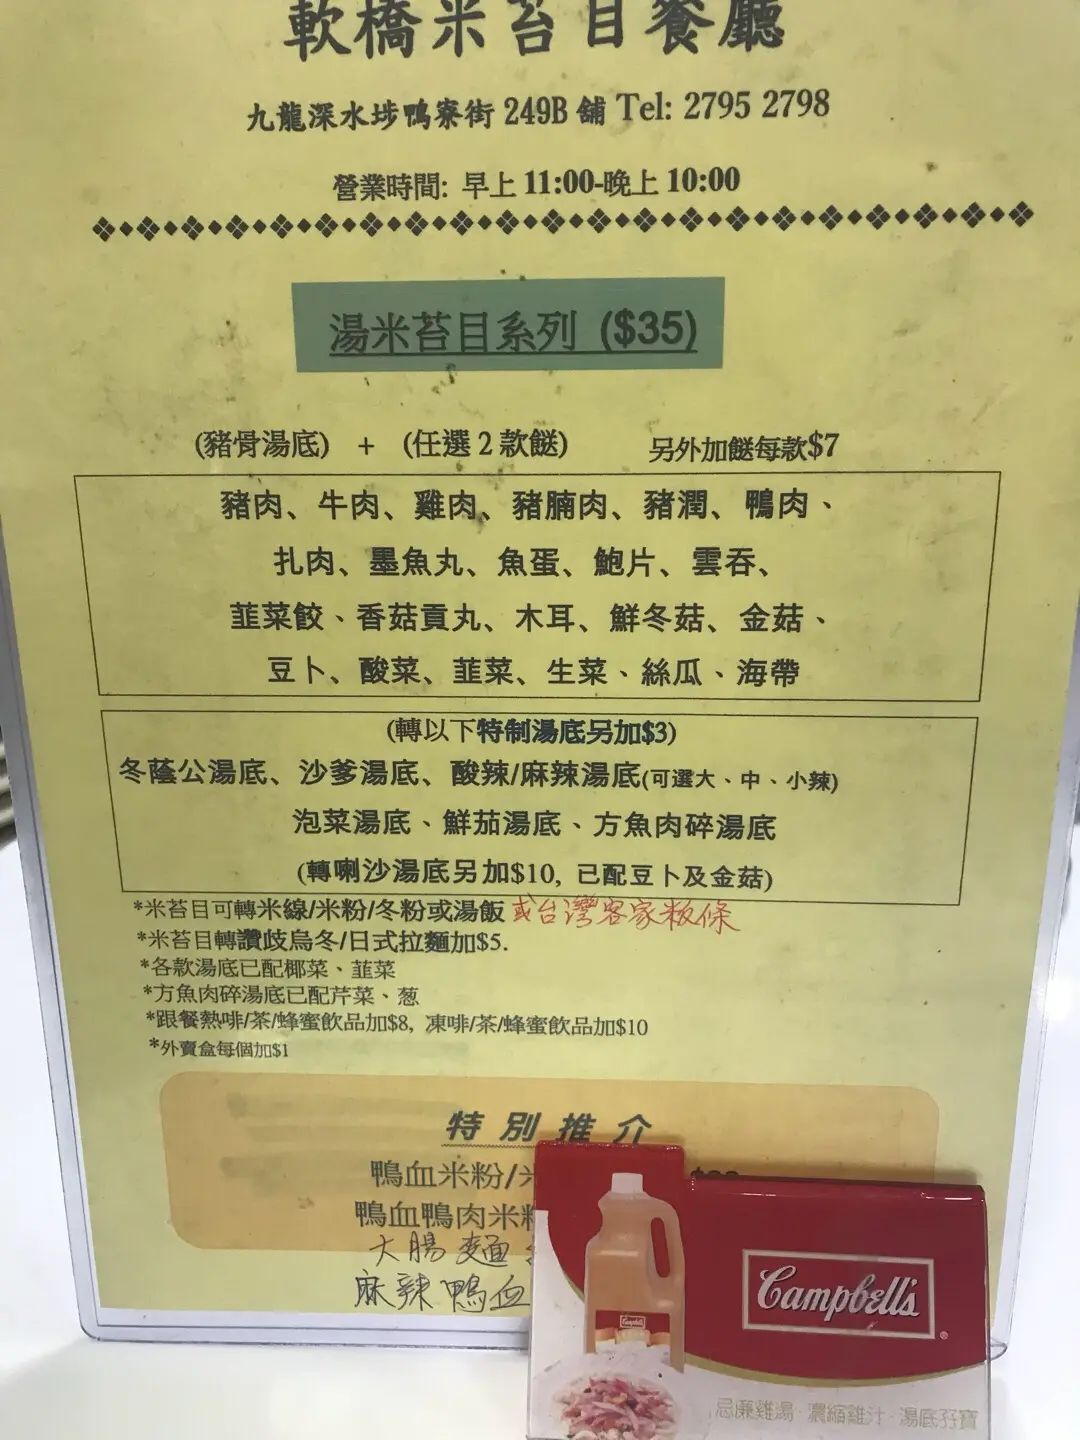 軟橋米苔目餐廳
九龍深水埗鴨寮街 249B 舖 Tel: 2795 2798
營業時間: 早上 11:00-晚上 10:00
湯米苔目系列 ($35)
(豬骨湯底) + (任選 2 款餸) 另外加餸每款$7
豬肉、牛肉、雞肉、豬腩肉、豬潤、鴨肉、
扎肉、墨魚丸、魚蛋、鮑片、雲吞、
韮菜餃、香菇貢丸、木耳、鮮冬菇、金菇、
豆卜、酸菜、韮菜、生菜、絲瓜、海帶
(轉以下特制湯底另加$3)
冬蔭公湯底、沙爹湯底、酸辣/麻辣湯底(可選大、中、小辣)
泡菜湯底、鮮茄湯底、方魚肉碎湯底
(轉喇沙湯底另加$10, 已配豆卜及金菇)
*米苔目可轉米線/米粉/冬粉或湯飯 或台灣客家粄條
*米苔目轉讚歧烏冬/日式拉麵加$5.
*各款湯底已配椰菜、韮菜
*方魚肉碎湯底已配芹菜、葱
*跟餐熱啡/茶/蜂蜜飲品加$8, 凍啡/茶/蜂蜜飲品加$10
*外賣盒每個加$1
特別推介
鴨血米粉/
鴨血鴨肉米
大腸麵
麻辣鴨血
Campbell's
Campbell's
忌廉雞湯·濃縮雞汁·湯底孖寶